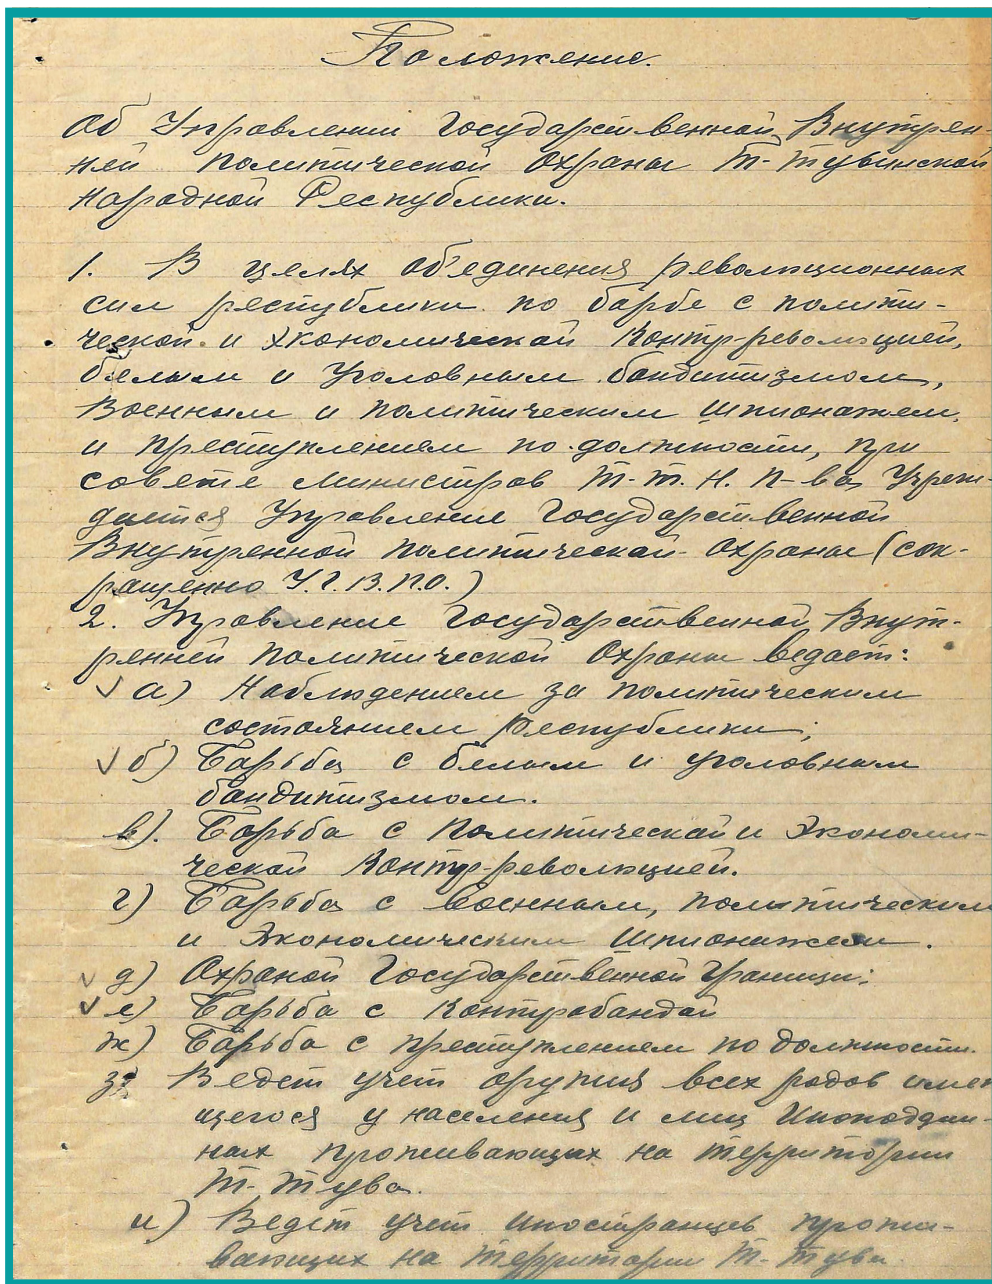 Положение.
Об Управлении Государственной Внутрен-
ней политической Охраны Т-Тувинской
Народной Республики.
1. В целях об'единения революционных
сил республики по барбе с полити-
ческой и экономической Контр-революцией,
белым и Уголовным бандитизмом,
Военным и политическим шпионажем,
и преступлением по должности, при
совете министров Т-Т.Н.Р-ки Учреж-
дается Управление Государственной
Внутренной политической Охраны (сок-
ращенно У.Г.В.П.О.)
2. Управление Государственной Внут-
ренней политической Охраны ведает:
а) Наблюдением за политическим
состоянием Республики;
б) Барьба с белым и уголовным
бандитизмом.
в). Борьба с Политической и Экономи-
ческой Контр-революцией.
г) Барьба с военным, политическим
и Экономическим Шпионажем.
д) Охраной Государственной Границы:
е) Барьба с Контрабандой
ж) Барьба с преступлением по должности.
з) Ведет учет оружия всех родов имею
щегося у населения и лиц Иноподдан-
ных проживающих на территории
Т-Тува.
и) Ведет учет иностранцев прожи-
вающих на территории Т-Тува.